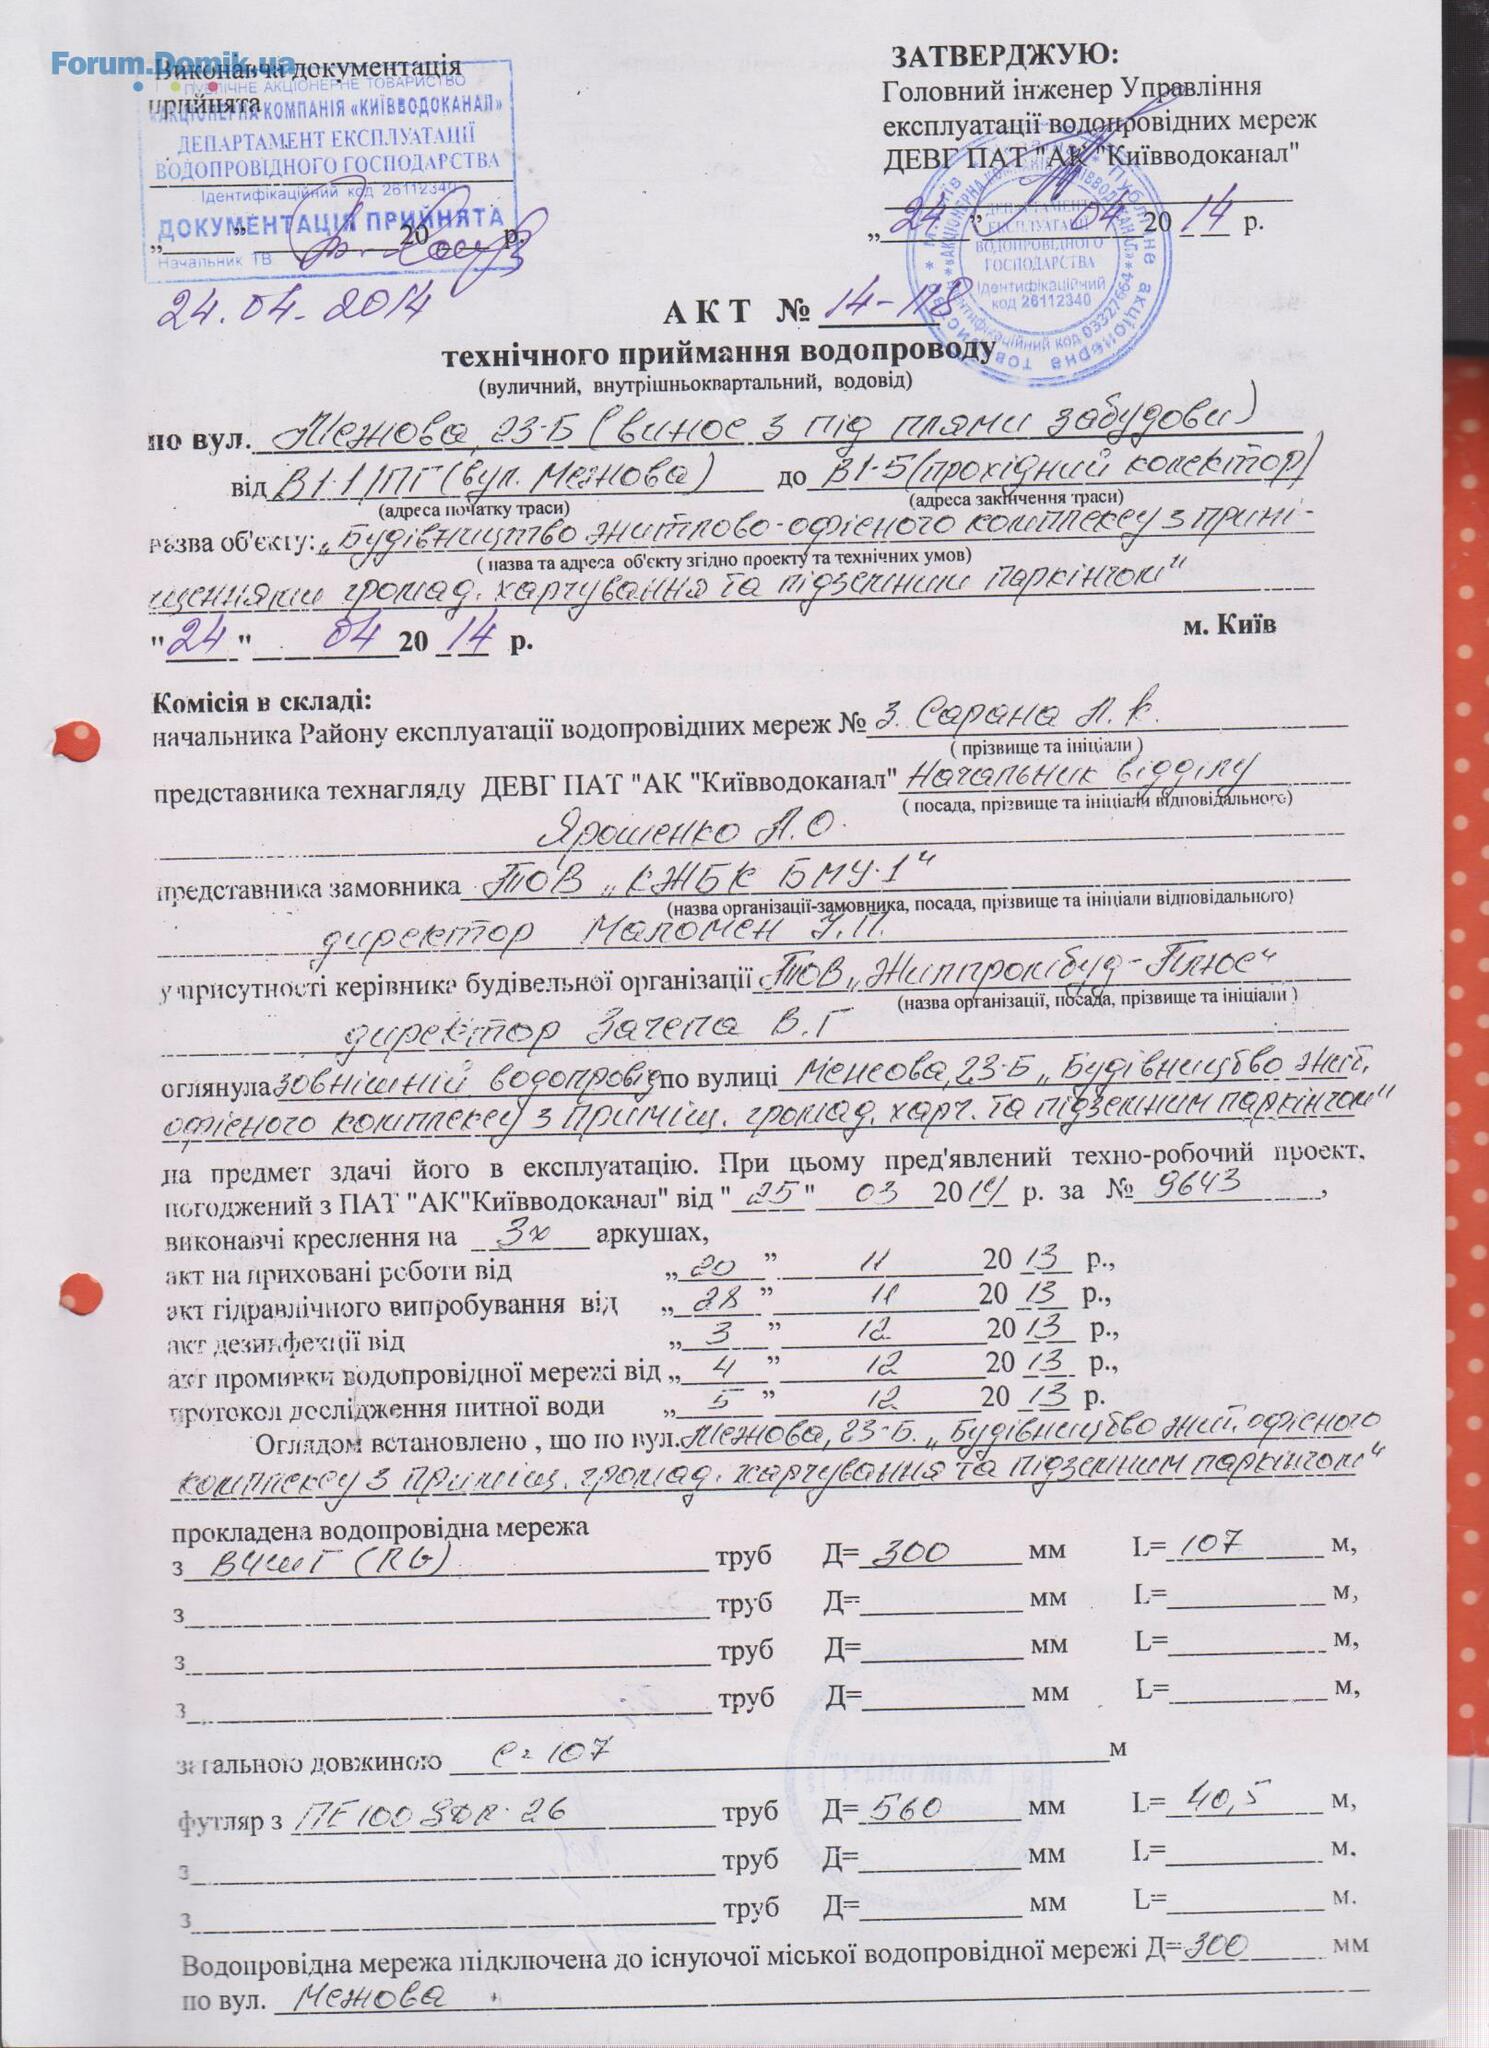 Forum.Domik.ua
Виконавча документація
прийнята
ПУБЛІЧНЕ АКЦІОНЕРНЕ ТОВАРИСТВО
«АКЦІОНЕРНА КОМПАНІЯ «КИЇВВОДОКАНАЛ»
ДЕПАРТАМЕНТ ЕКСПЛУАТАЦІЇ
ВОДОПРОВІДНОГО ГОСПОДАРСТВА
Ідентифікаційний код 26112340
ДОКУМЕНТАЦІЯ ПРИЙНЯТА
„ ” 20 р.
Начальник ТВ
24.04.2014
ЗАТВЕРДЖУЮ:
Головний інженер Управління
експлуатації водопровідних мереж
ДЕВГ ПАТ "АК "Київводоканал"
„24” 04 2014 р.
ДЕПАРТАМЕНТ
ЕКСПЛУАТАЦІЇ
ВОДОПРОВІДНОГО
ГОСПОДАРСТВА
Ідентифікаційний
код 26112340
АКТ № 14-118
технічного приймання водопроводу
(вуличний, внутрішньоквартальний, водовід)
по вул. Межова, 23-Б (винос з під плями забудови)
від В1-1/ПГ (вул. Межова) до В1-5 (прохідний колектор)
(адреса початку траси) (адреса закінчення траси)
назва об'єкту: „Будівництво житлово-офісного комплексу з примі-
( назва та адреса об'єкту згідно проекту та технічних умов)
щеннями громад. харчування та підземним паркінгом"
"24" 04 2014 р. м. Київ
Комісія в складі:
начальника Району експлуатації водопровідних мереж № 3. Сарана Л. К.
( прізвище та ініціали )
представника технагляду ДЕВГ ПАТ "АК "Київводоканал" Начальник відділу
( посада, прізвище та ініціали відповідального)
Ярошенко А.О.
представника замовника ТОВ „КЖБК БМУ-1"
(назва організації-замовника, посада, прізвище та ініціали відповідального)
директор Маломен І.П.
у присутності керівника будівельної організації ТОВ „Житпромбуд-Плюс"
(назва організації, посада, прізвище та ініціали )
директор Зачепа В.Г
оглянула зовнішній водопровід по вулиці Межова, 23-Б „Будівництво жит.
офісного комплексу з приміщ. громад. харч. та підземним паркінгом"
на предмет здачі його в експлуатацію. При цьому пред'явлений техно-робочий проект,
погоджений з ПАТ "АК"Київводоканал" від "25" 03 2014 р. за № 9643,
виконавчі креслення на 3х аркушах,
акт на приховані роботи від „20” 11 2013 р.,
акт гідравлічного випробування від „28” 11 2013 р.,
акт дезинфекції від „3” 12 2013 р.,
акт промивки водопровідної мережі від „4” 12 2013 р.,
протокол дослідження питної води „5” 12 2013 р.
Оглядом встановлено , що по вул. Межова, 23-Б. „Будівництво жит. офісного
комплексу з приміщ. громад. харчування та підземним паркінгом"
прокладена водопровідна мережа
з ВЧШГ (RG) труб Д= 300 мм L= 107 м,
з труб Д= мм L= м,
з труб Д= мм L= м,
з труб Д= мм L= м,
загальною довжиною ℓ= 107 м
футляр з ПЕ100 SDR-26 труб Д= 560 мм L= 40,5 м,
з труб Д= мм L= м.
з труб Д= мм L= м.
Водопровідна мережа підключена до існуючої міської водопровідної мережі Д=300 мм
по вул. Межова